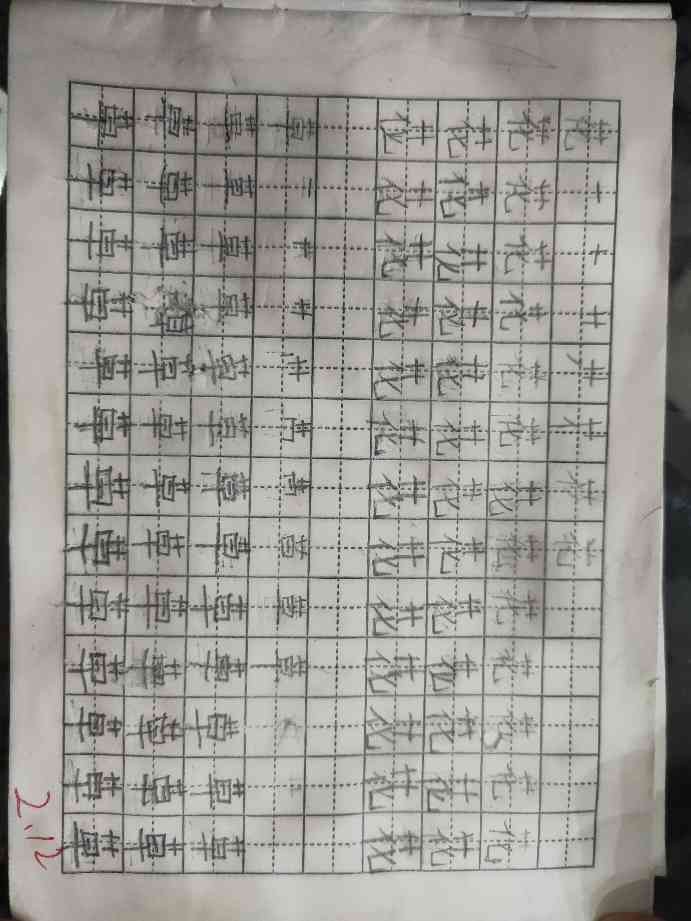 花 花
花 花 花 花 花 花 花 花 花 花 花 花 花
花 花 花 花 花 花 花 花 花 花 花 花 花
花 花 花 花 花 花 花 花 花 花 花 花 花
草
草 草 草 草 草 草 草 草 草 草 草 草 草
草 草 草 草 草 草 草 草 草 草 草 草
草 草 草 草 草 草 草 草 草 草 草 草 草
2.12